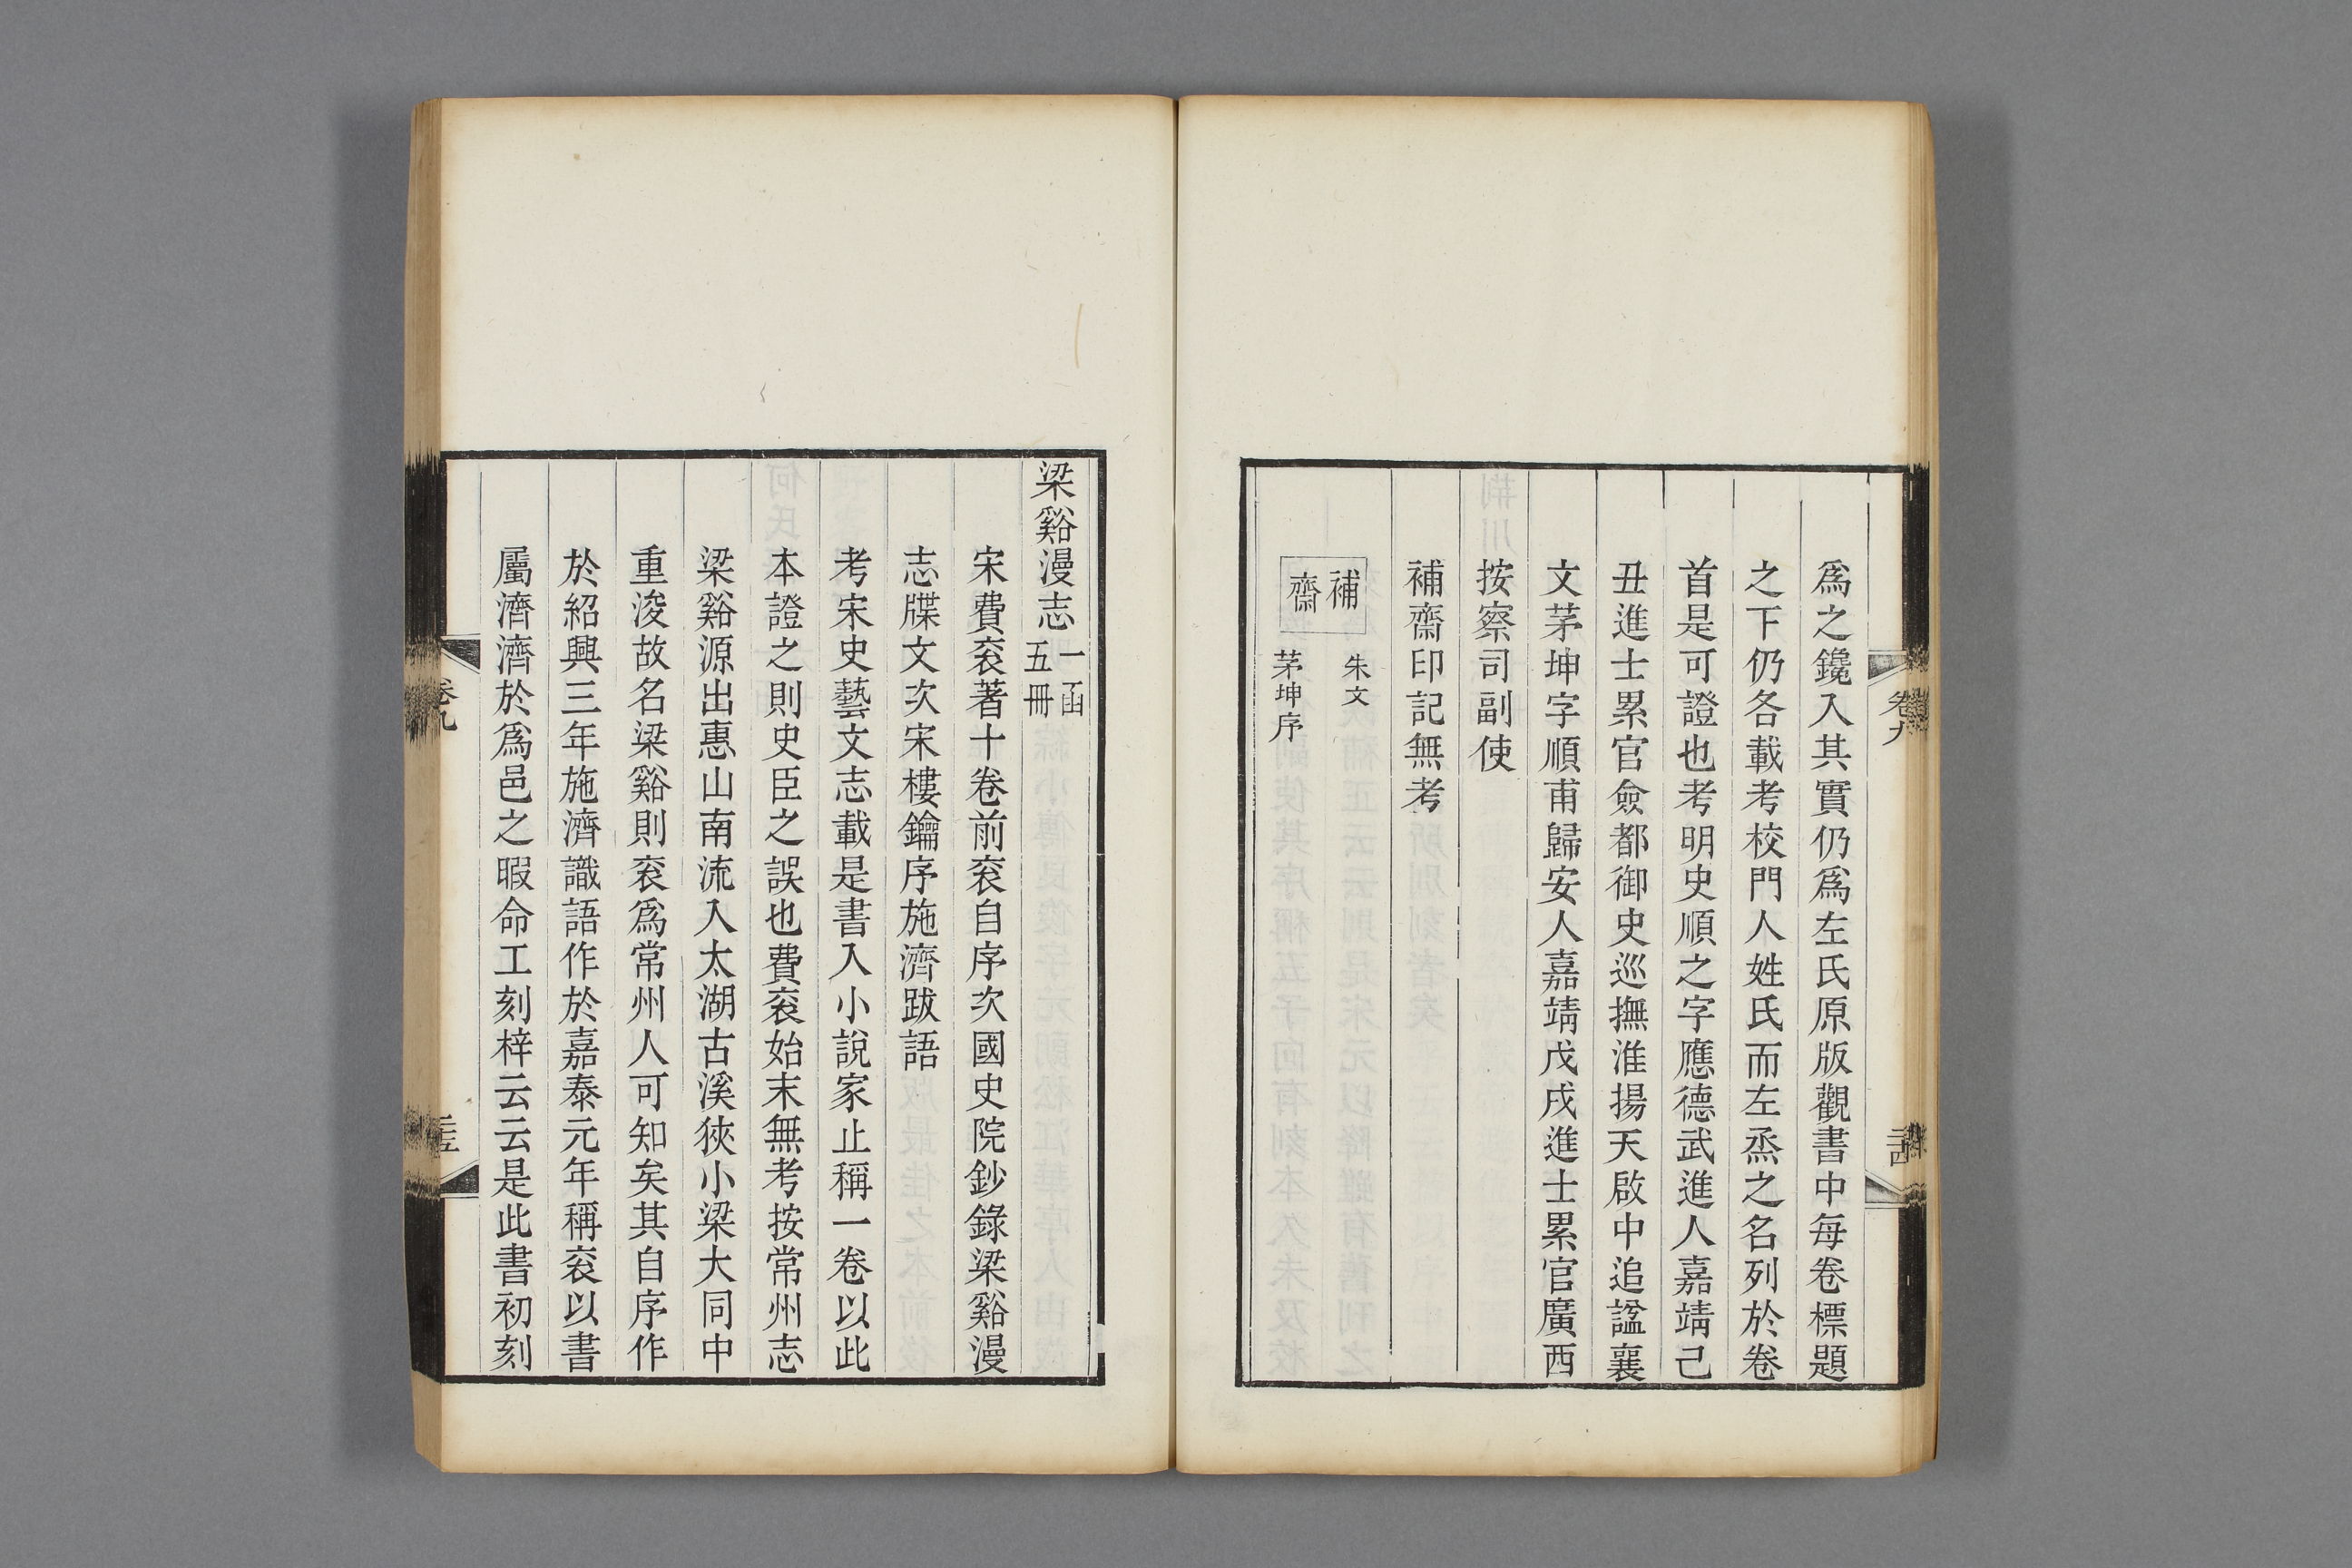 爲之鑱入其實仍爲左氏原版觀書中每卷標題
之下仍各載考校門人姓氏而左烝之名列於卷
首是可證也考明史順之字應德武進人嘉靖己
丑進士累官僉都御史巡撫淮揚天啟中追諡襄
文茅坤字順甫歸安人嘉靖戊戌進士累官廣西
按察司副使
補齋印記無考
補齋
朱文
茅坤序
卷九
二十四
梁谿漫志
一函
五冊
宋費袞著十卷前袞自序次國史院鈔錄梁谿漫
志牒文次宋樓鑰序施濟跋語
考宋史藝文志載是書入小說家止稱一卷以此
本證之則史臣之誤也費袞始末無考按常州志
梁谿源出惠山南流入太湖古溪狹小梁大同中
重浚故名梁谿則袞爲常州人可知矣其自序作
於紹興三年施濟識語作於嘉泰元年稱袞以書
屬濟濟於爲邑之暇命工刻梓云云是此書初刻
卷九
二十五